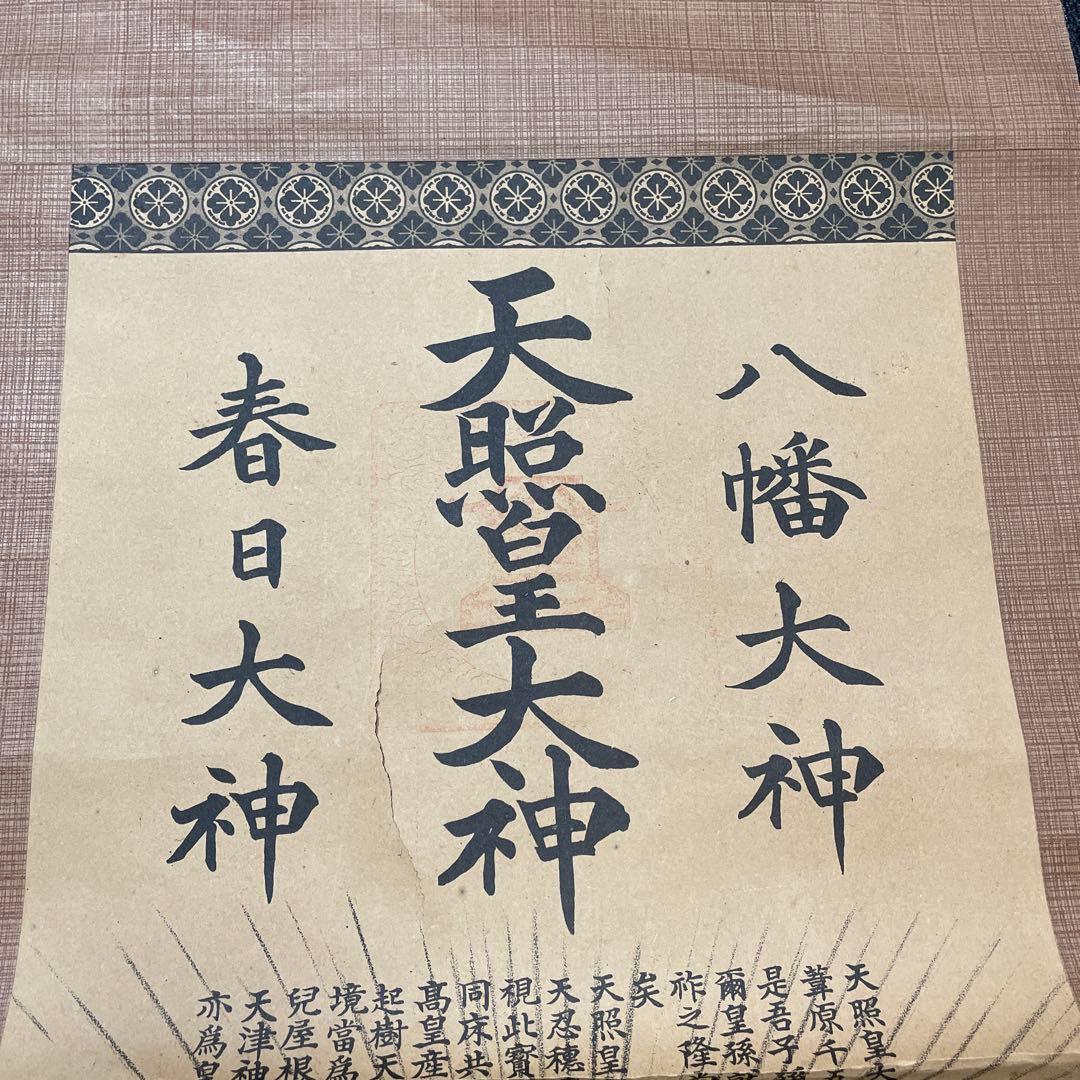 八幡大神
天照皇大神
春日大神
天照皇大
葦原千
是吾子孫
爾皇孫就
祚之隆
矣
天照皇
天忍穗
視此寳
同床共
高皇産
起樹天
境當爲
兒屋根
天津神
亦爲皇